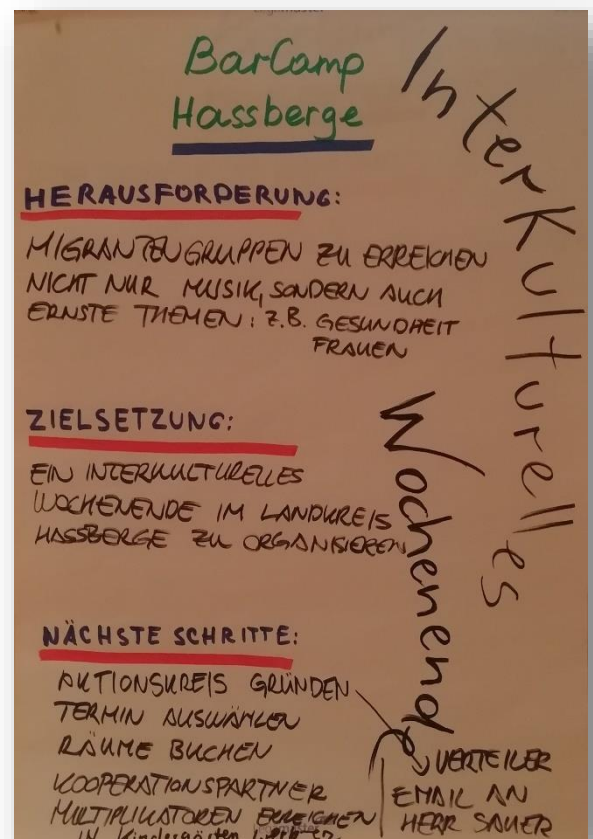 BarCamp
Hassberge
InterKulturelles
Wochenende
HERAUSFORDERUNG:
MIGRANTENGRUPPEN ZU ERREICHEN
NICHT NUR MUSIK, SONDERN AUCH
ERNSTE THEMEN: Z.B. GESUNDHEIT
FRAUEN
ZIELSETZUNG:
EIN INTERKULTURELLES
WOCHENENDE IM LANDKREIS
HASSBERGE ZU ORGANISIEREN
NÄCHSTE SCHRITTE:
AKTIONSKREIS GRÜNDEN
TERMIN AUSWÄHLEN
RÄUME BUCHEN
KOOPERATIONSPARTNER
MULTIPLIKATOREN ERREICHEN
IN Kindergärten
VERTEILER
EMAIL AN
HERR SAUER